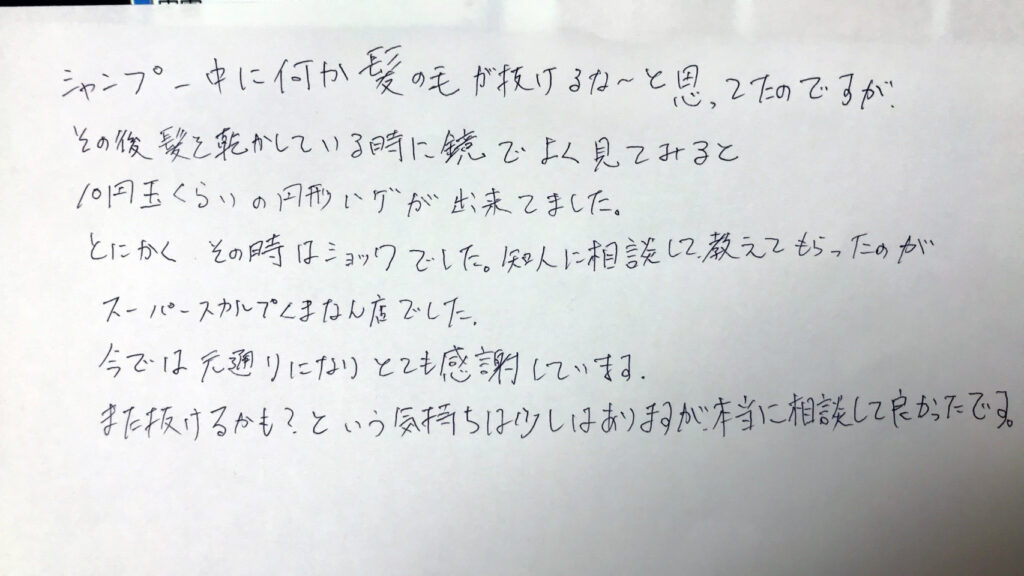 シャンプー中に何か髪の毛が抜けるな〜と思ってたのですが、
その後髪を乾かしている時に鏡でよく見てみると
10円玉くらいの円形ハゲが出来てました。
とにかく その時はショックでした。知人に相談して、教えてもらったのが
スーパースカルプくまなん店でした。
今では元通りになりとても感謝しています。
また抜けるかも?という気持ちは少しはありますが、本当に相談して良かったです。